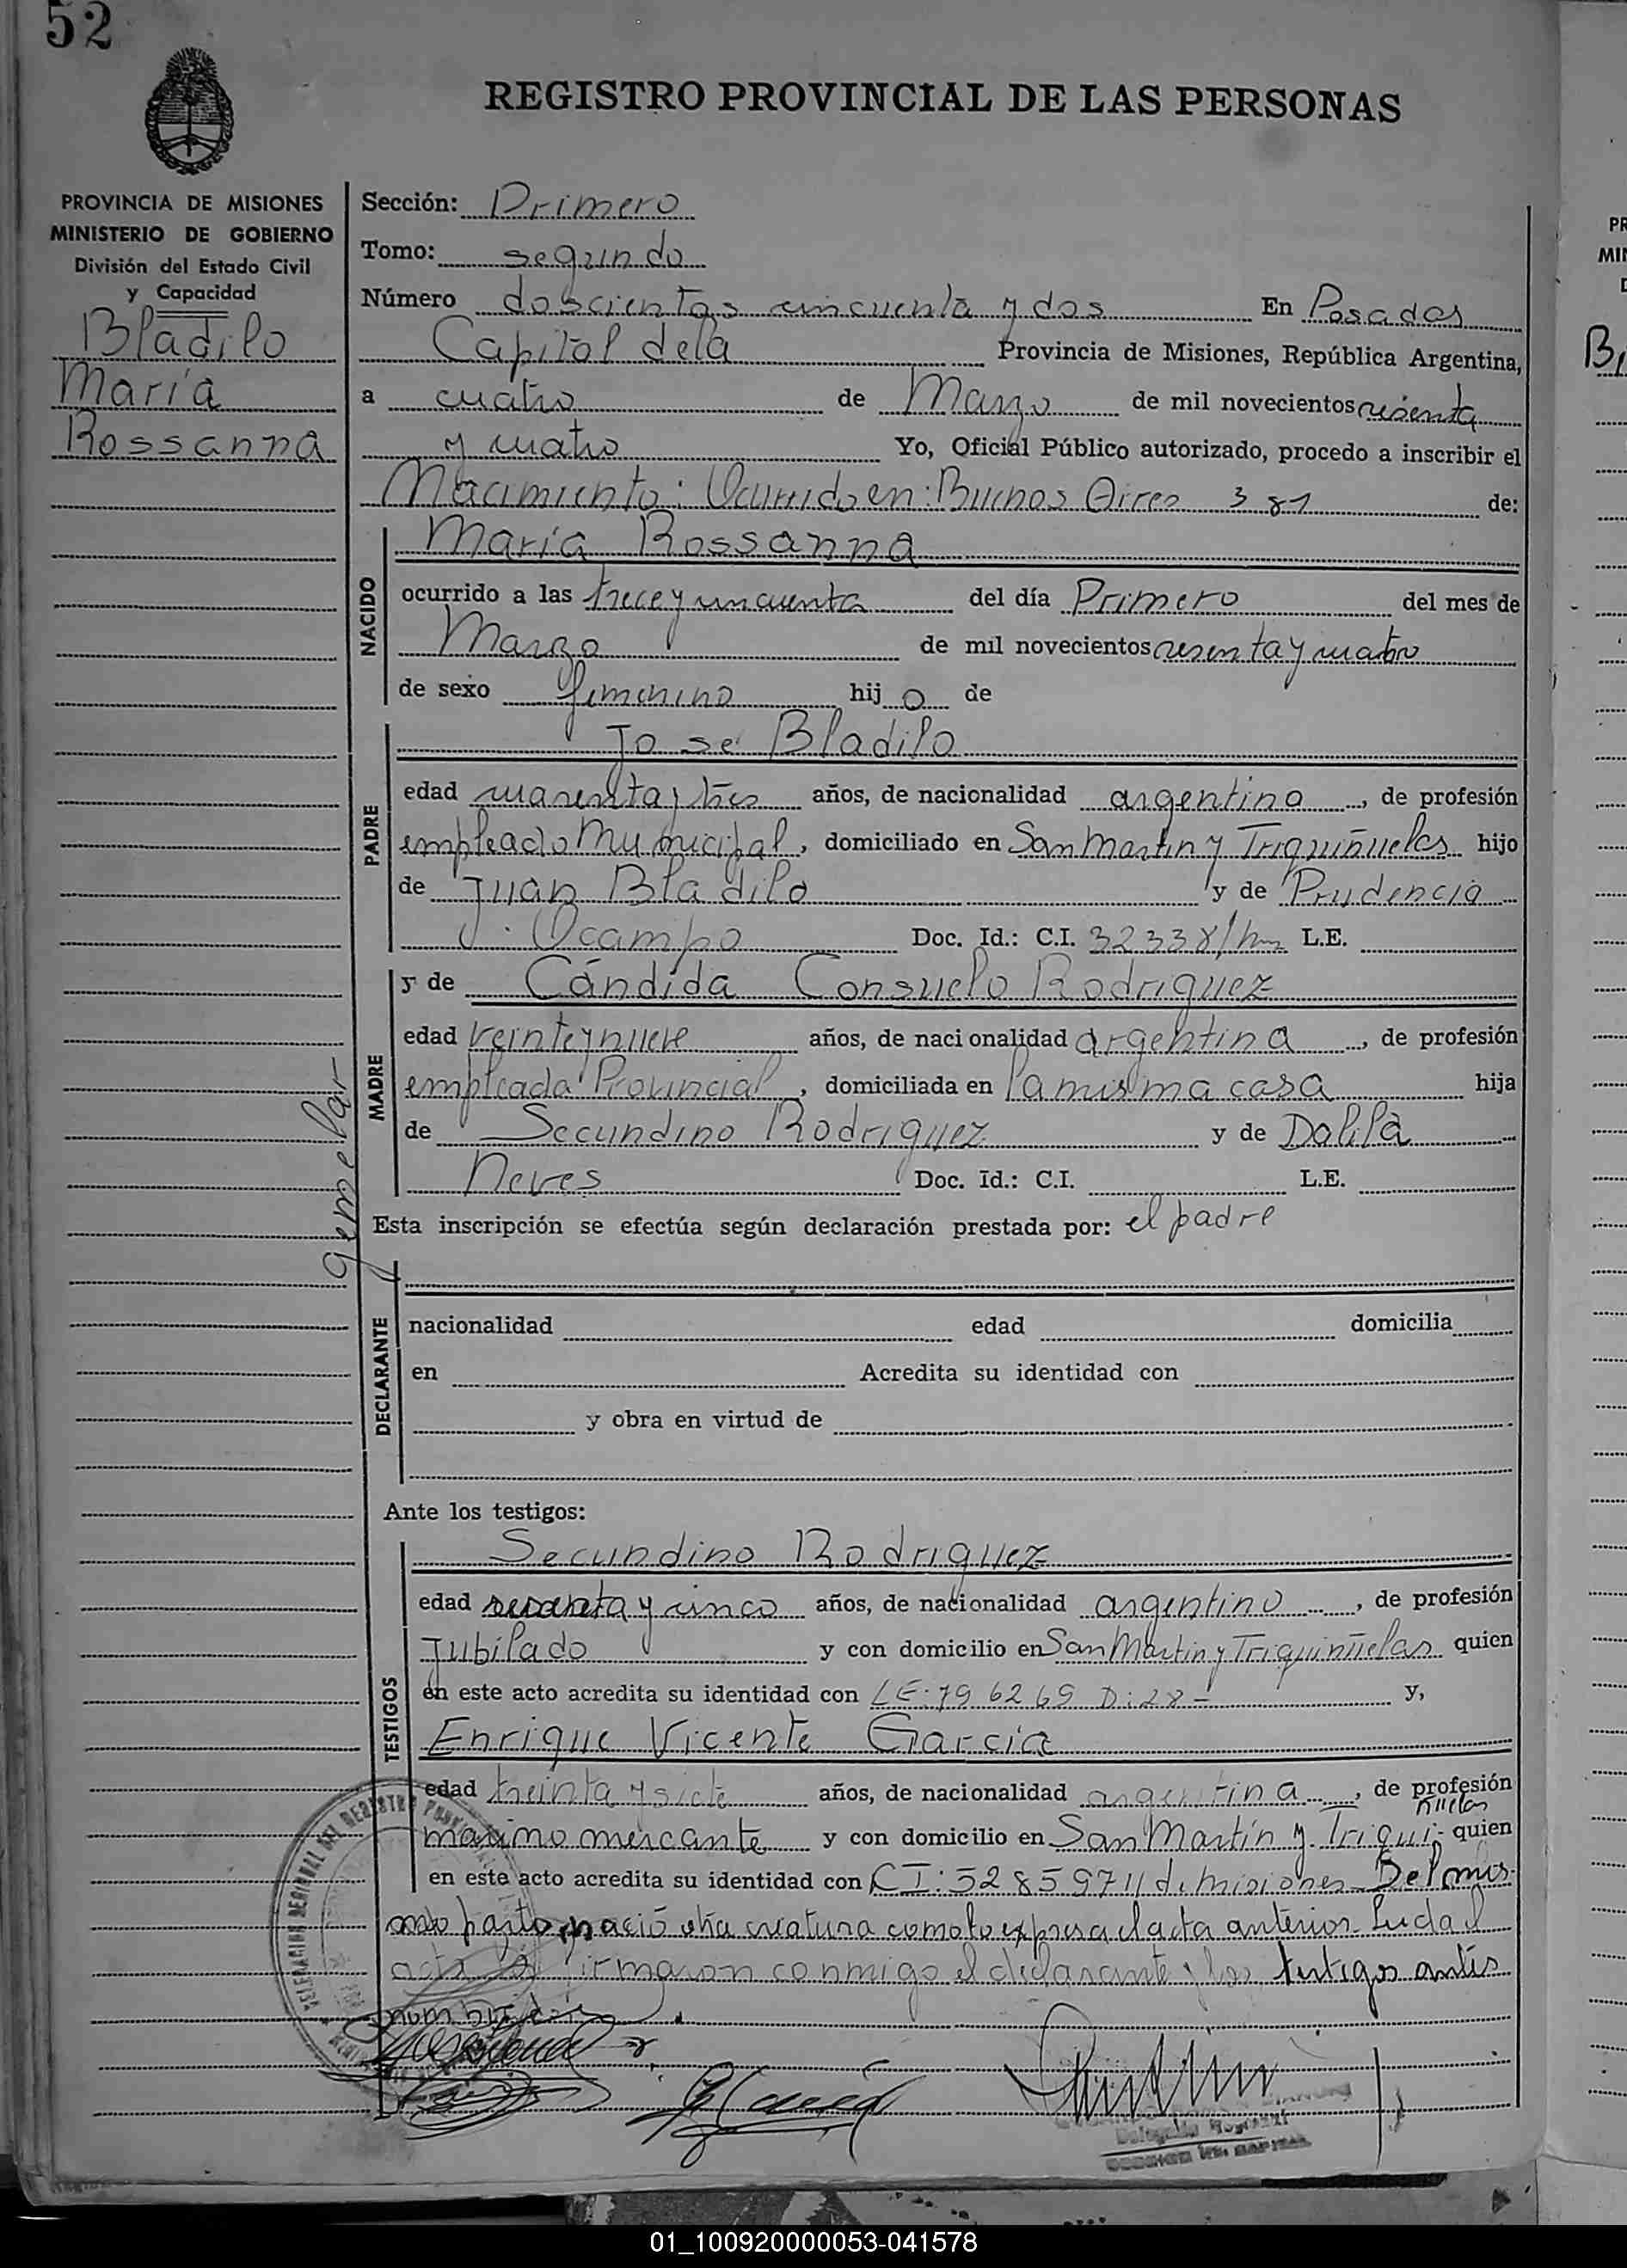 52
REGISTRO PROVINCIAL DE LAS PERSONAS
PROVINCIA DE MISIONES
MINISTERIO DE GOBIERNO
División del Estado Civil
y Capacidad
Bladilo
María
Rossanna
Sección: Primero
Tomo: segundo
Número doscientos cincuenta y dos En Posadas
Capital de la Provincia de Misiones, República Argentina,
a cuatro de Marzo de mil novecientos sesenta
y cuatro Yo, Oficial Público autorizado, procedo a inscribir el
Nacimiento: Ocurrido en: Buenos Aires 381 de:
NACIDO
María Rossanna
ocurrido a las trece y cincuenta del día Primero del mes de
Marzo de mil novecientos sesenta y cuatro
de sexo femenino hijo de
PADRE
José Bladilo
edad cuarenta y tres años, de nacionalidad argentino, de profesión
empleado Municipal, domiciliado en San Martin y Triquiñuelas hijo
de Juan Bladilo y de Prudencia
J. Ocampo Doc. Id.: C.I. 32338 L.E.
MADRE
y de Cándida Consuelo Rodriguez
edad veinte y nueve años, de nacionalidad argentina, de profesión
empleada Provincial, domiciliada en la misma casa hija
de Secundino Rodriguez y de Dalila
Neves Doc. Id.: C.I. L.E.
gemelar
Esta inscripción se efectúa según declaración prestada por: el padre
DECLARANTE
nacionalidad edad domicilia
en Acredita su identidad con
y obra en virtud de
Ante los testigos:
TESTIGOS
Secundino Rodriguez
edad sesenta y cinco años, de nacionalidad argentino, de profesión
Jubilado y con domicilio en San Martin y Triquiñuelas quien
en este acto acredita su identidad con LE: 796269 D: 28 y,
Enrique Vicente Garcia
edad treinta y siete años, de nacionalidad argentina, de profesión
marino mercante y con domicilio en San Martín y Triqui- ñuelas quien
en este acto acredita su identidad con CI: 52859711 de Misiones Del mis
mo parto nació otra creatura como lo expresa el acta anterior. Leida el
acta la firmaron conmigo el declarante y los testigos antes
nombrados
01_100920000053-041578